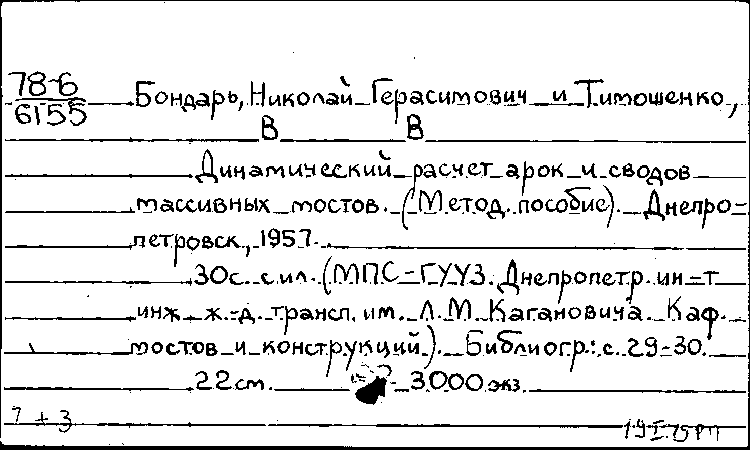 78-6
6155
Бондарь, Николай Герасимович и Тимошенко,
В В
Динамический расчет арок и сводов
массивных мостов. (Метод. пособие). Днепро-
петровск, 1957.
30с. с ил. (МПС-ГУУЗ. Днепропетр. ин-т
инж. ж.-д. трансп. им. Л. М. Кагановича. Каф.
мостов и конструкций). Библиогр.: с. 29-30.
22 см. 3000 экз.
7 + 3